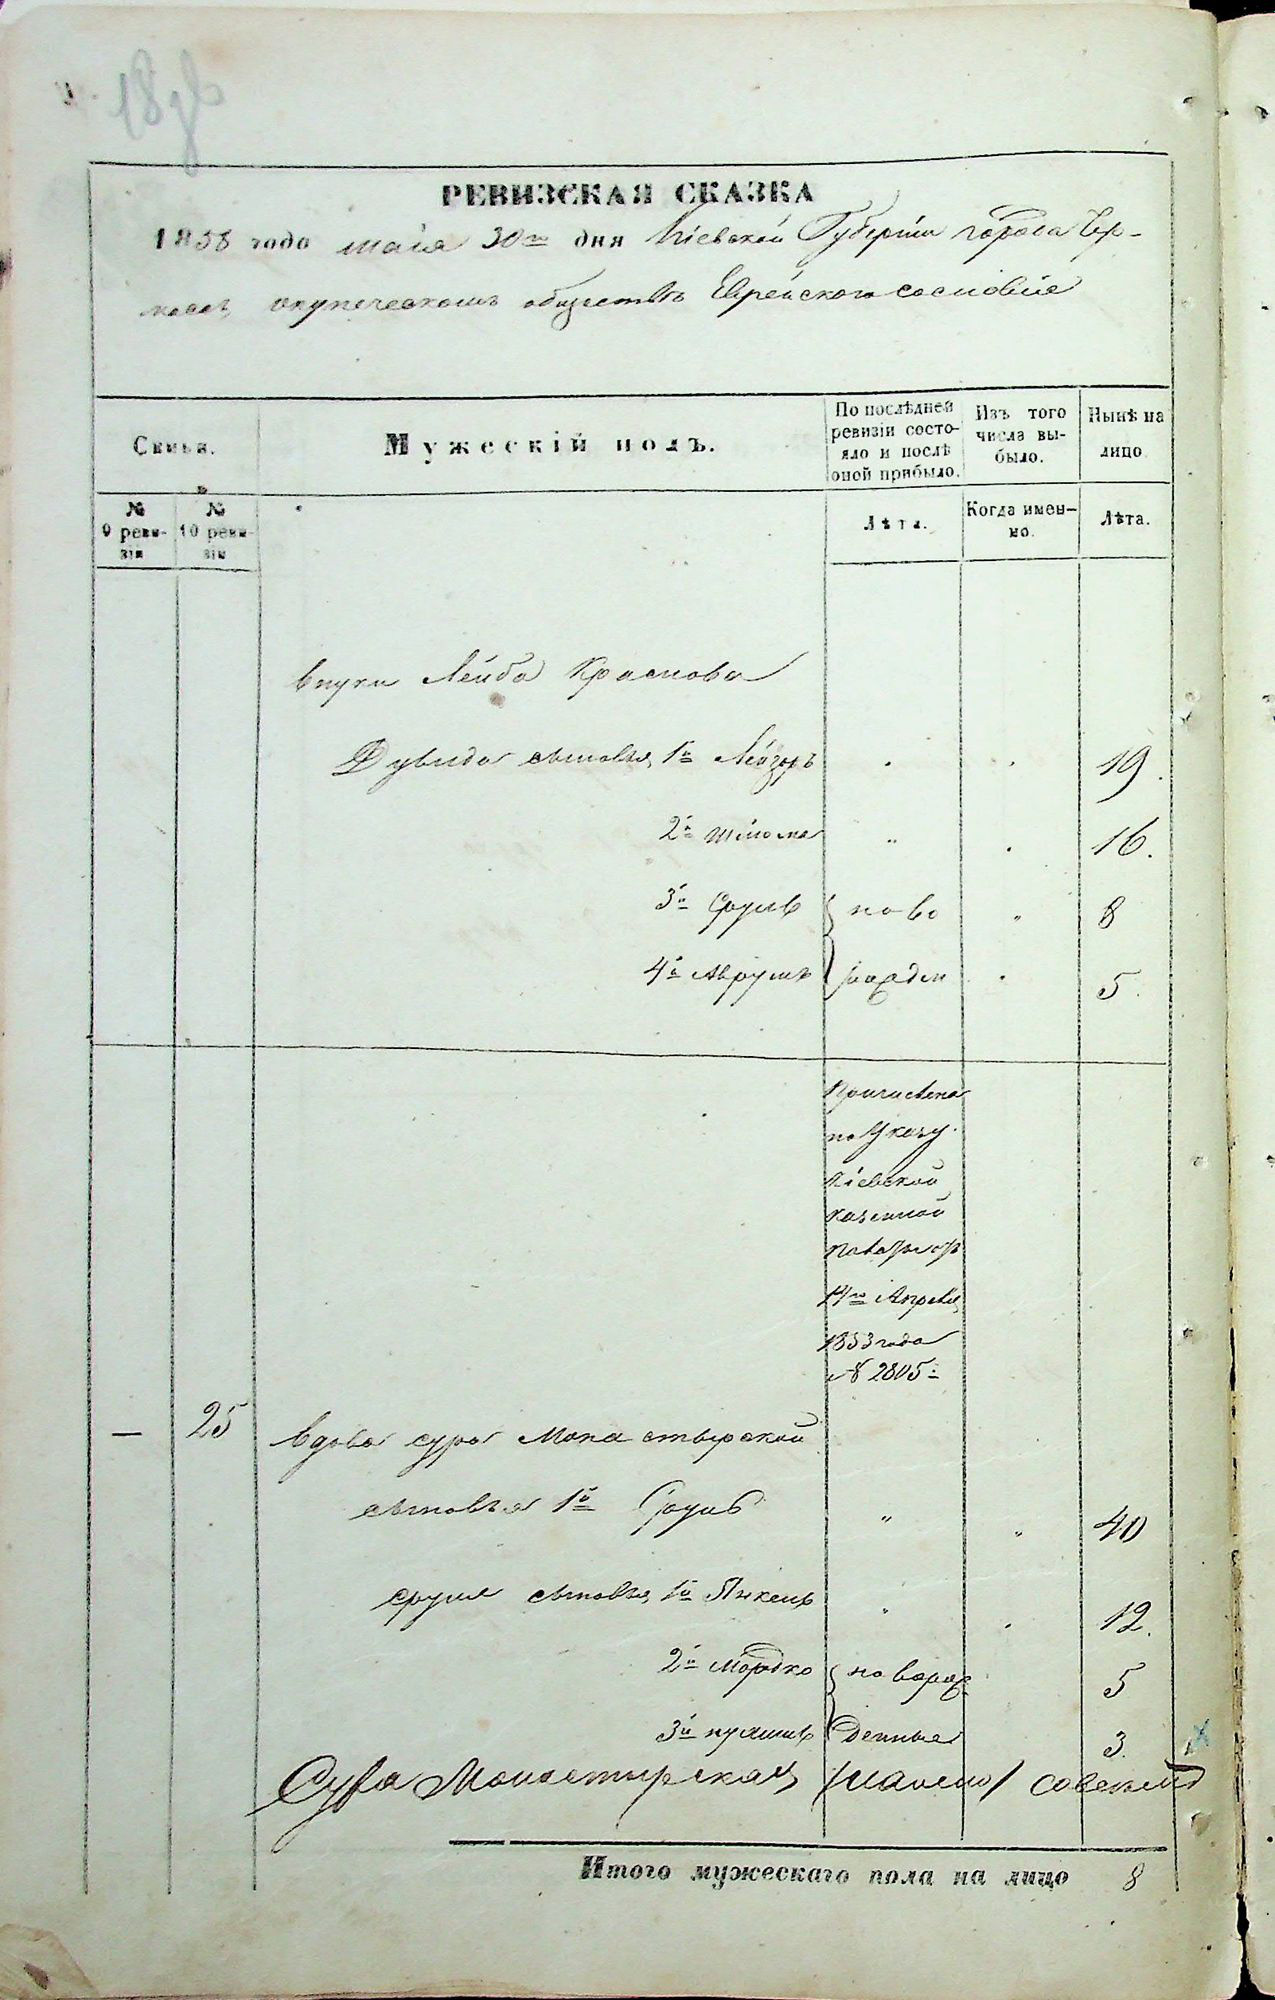 РЕВИЗСКАЯ СКАЗКА
1858 года мая 30го дня Кіевской Губерніи города Чер-
касъ окупеческомъ обществѣ Еврейского сословіе
Семьи.
Мужескій полъ.
По послѣдней ревизіи состояло и послѣ оной прибыло.
Изъ того числа выбыло.
Нынѣ на лицо
№ 9 ревизіи
№ 10 ревизіи
Лѣта.
Когда именно.
Лѣта.
внуки Лейба Краснова
Дувида сыновья, 1й Лейзоръ 19.
2й Шлома " 16.
3й Сруль ново " 8
4й Аврумъ рожден 5.
Причислена
по Указу
Кіевской
казенной
14го Апреля,
1853 года
№ 2805
— 25 вдова сура Монастырской
сыновья 1й Сруль " " 40
сруля сыновья, 1й " 12.
2й Мордко новорож 5
3й денные 3.
Сура Монастырская
Итого мужескаго пола на лицо 8